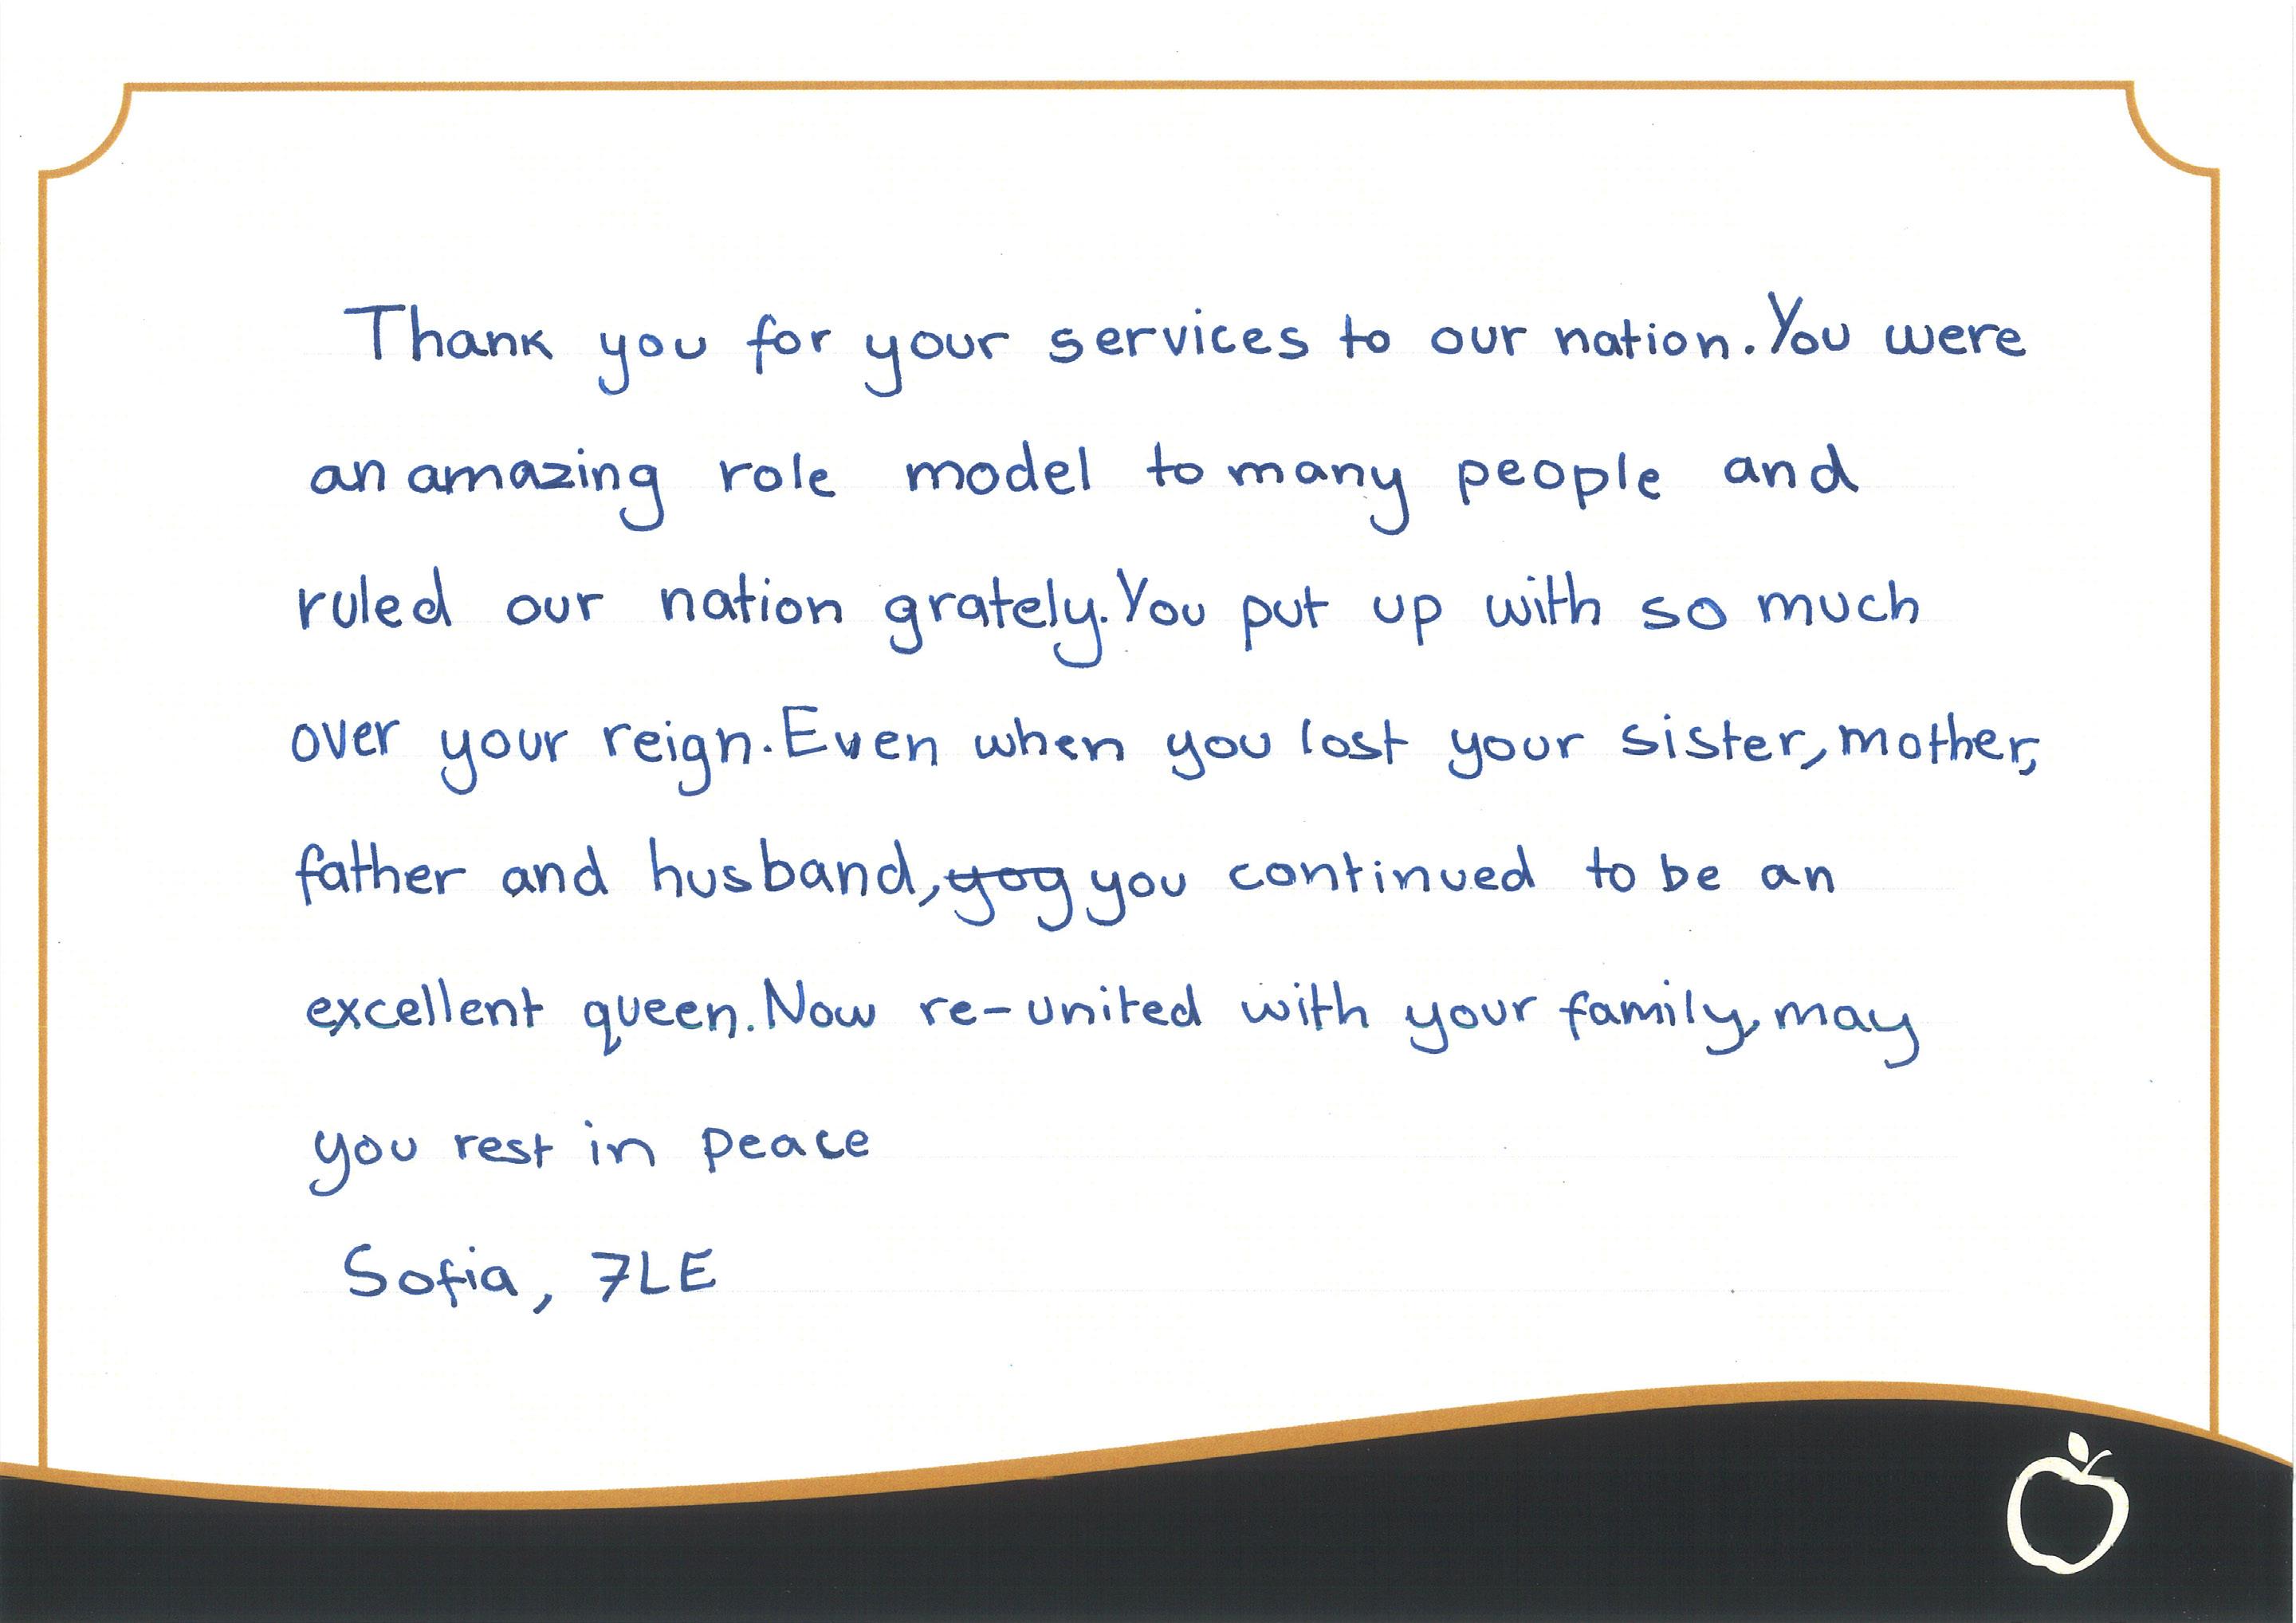 Thank you for your services to our nation. You were
an amazing role model to many people and
ruled our nation grately. You put up with so much
over your reign. Even when you lost your sister, mother,
father and husband, yog you continued to be an
excellent queen. Now re-united with your family, may
you rest in peace
Sofia, 7LE